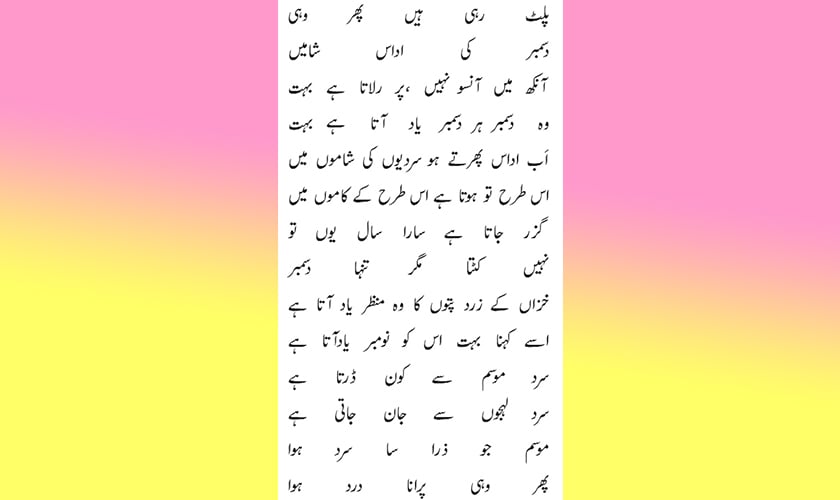 پلٹ رہی ہیں پھر وہی
دسمبر کی اداس شامیں
آنکھ میں آنسو نہیں ،پر رلاتا ہے بہت
وہ دسمبر ہر دسمبر یاد آتا ہے بہت
اَب اداس پھرتے ہو سردیوں کی شاموں میں
اس طرح تو ہوتا ہے اس طرح کے کاموں میں
گزر جاتا ہے سارا سال یوں تو
نہیں کٹتا مگر تنہا دسمبر
خزاں کے زرد پتوں کا وہ منظر یاد آتا ہے
اسے کہنا بہت اس کو نومبر یادآتا ہے
سرد موسم سے کون ڈرتا ہے
سرد لہجوں سے جان جاتی ہے
موسم جو ذرا سا سرد ہوا
پھر وہی پرانا درد ہوا